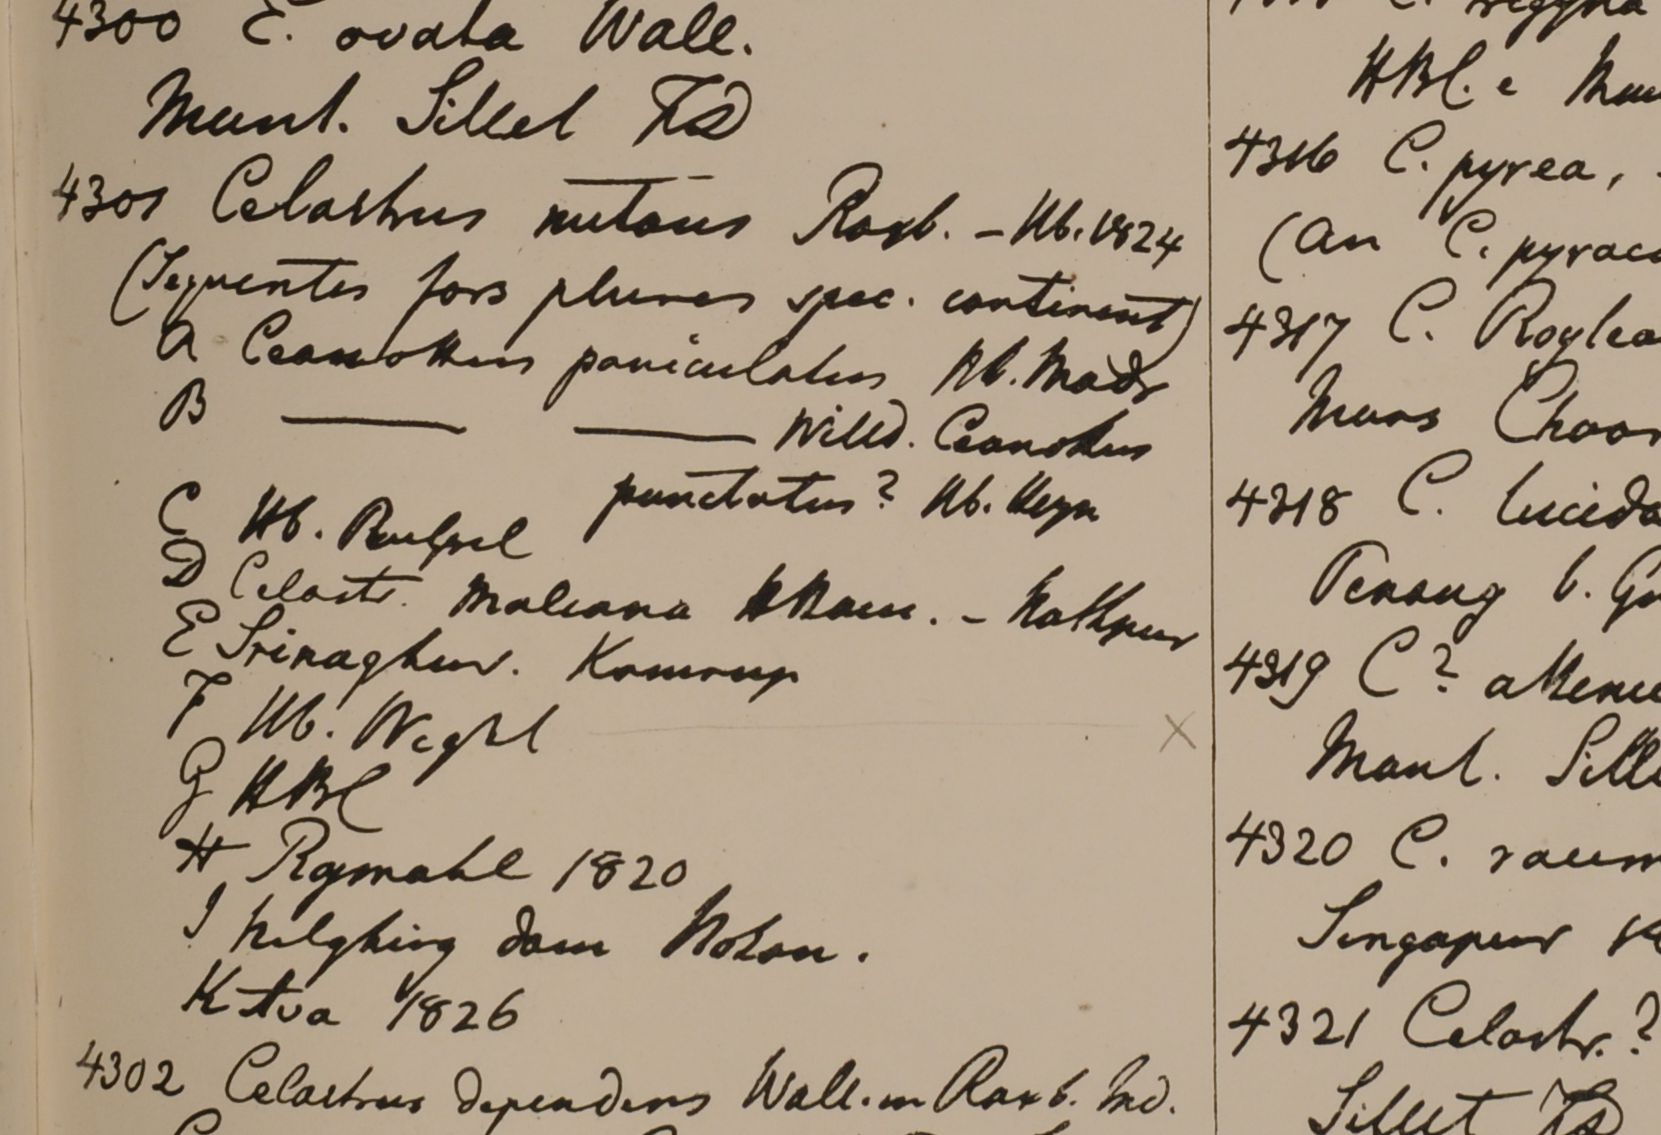 4300 E. ovata Wall.
Mont. Sillet FD
4301 Celastrus nutans Roxb. – Hb. 1824
(Sequentes fors plures spec. continent)
A Ceanothus paniculatus Hb. Madr
B —— —— Willd. Ceanothus
punctatus? Hb. Heyn
C Hb.
D Celastr. HHam. – Nathpur
E Srinaghur. Kamrup
F Hb. Wight
G HBC
H Rajmahl 1820
I dom Noton.
K Ava 1826
4302 Celastrus dependens Wall. in Roxb. Ind.
HBC. e
4316 C. pyrea,
(an C. pyrac
4317 C. Roylea
Mons
4318 C. lucida
Penang
4319 C? attenu
Mont. Sill
4320 C. racem
Singapur
4321 Celastr.?
Sillet FD